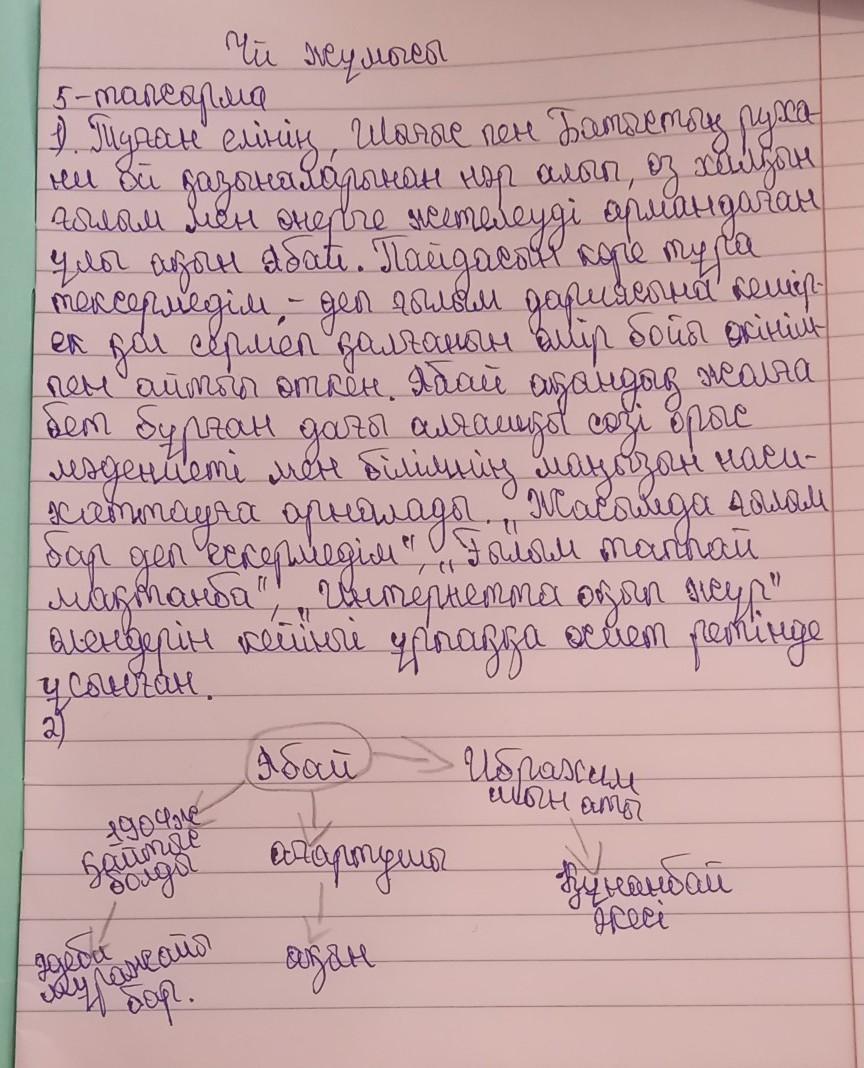 Үй жұмысы
5-тапсырма
1). Туған елінің, Шығыс пен Батыстың руха-
ни ой қазыналарынан нәр алып, өз халқын
ғылым мен өнерге жетелеуді армандаған
ұлы ақын Абай. Пайдасын көре тұра
тексермедім, - деп ғылым дариясына кешір-
ек қол сермеп қалғанын өмір бойы өкініш-
пен айтып өткен. Абай ақындық жолға
бет бұрған дағы алғашқы сөзі орыс
мәдениеті мен білімнің маңызын наси-
хаттауға арналады. „Жасымда ғылым
бар деп ескермедім", „Ғылым таппай
мақтанба", „Интернетта оқып жүр"
өлеңдерін кейінгі ұрпаққа өсиет ретінде
ұсынған.
2)
Абай
Ибрахим
шын аты
1904ж
қайтыс
болды
ағартушы
Құнанбай
әкесі
әдеби
мұражайы
бар.
ақын